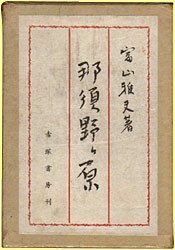 富山雅夫著
那須野ヶ原
書房刊